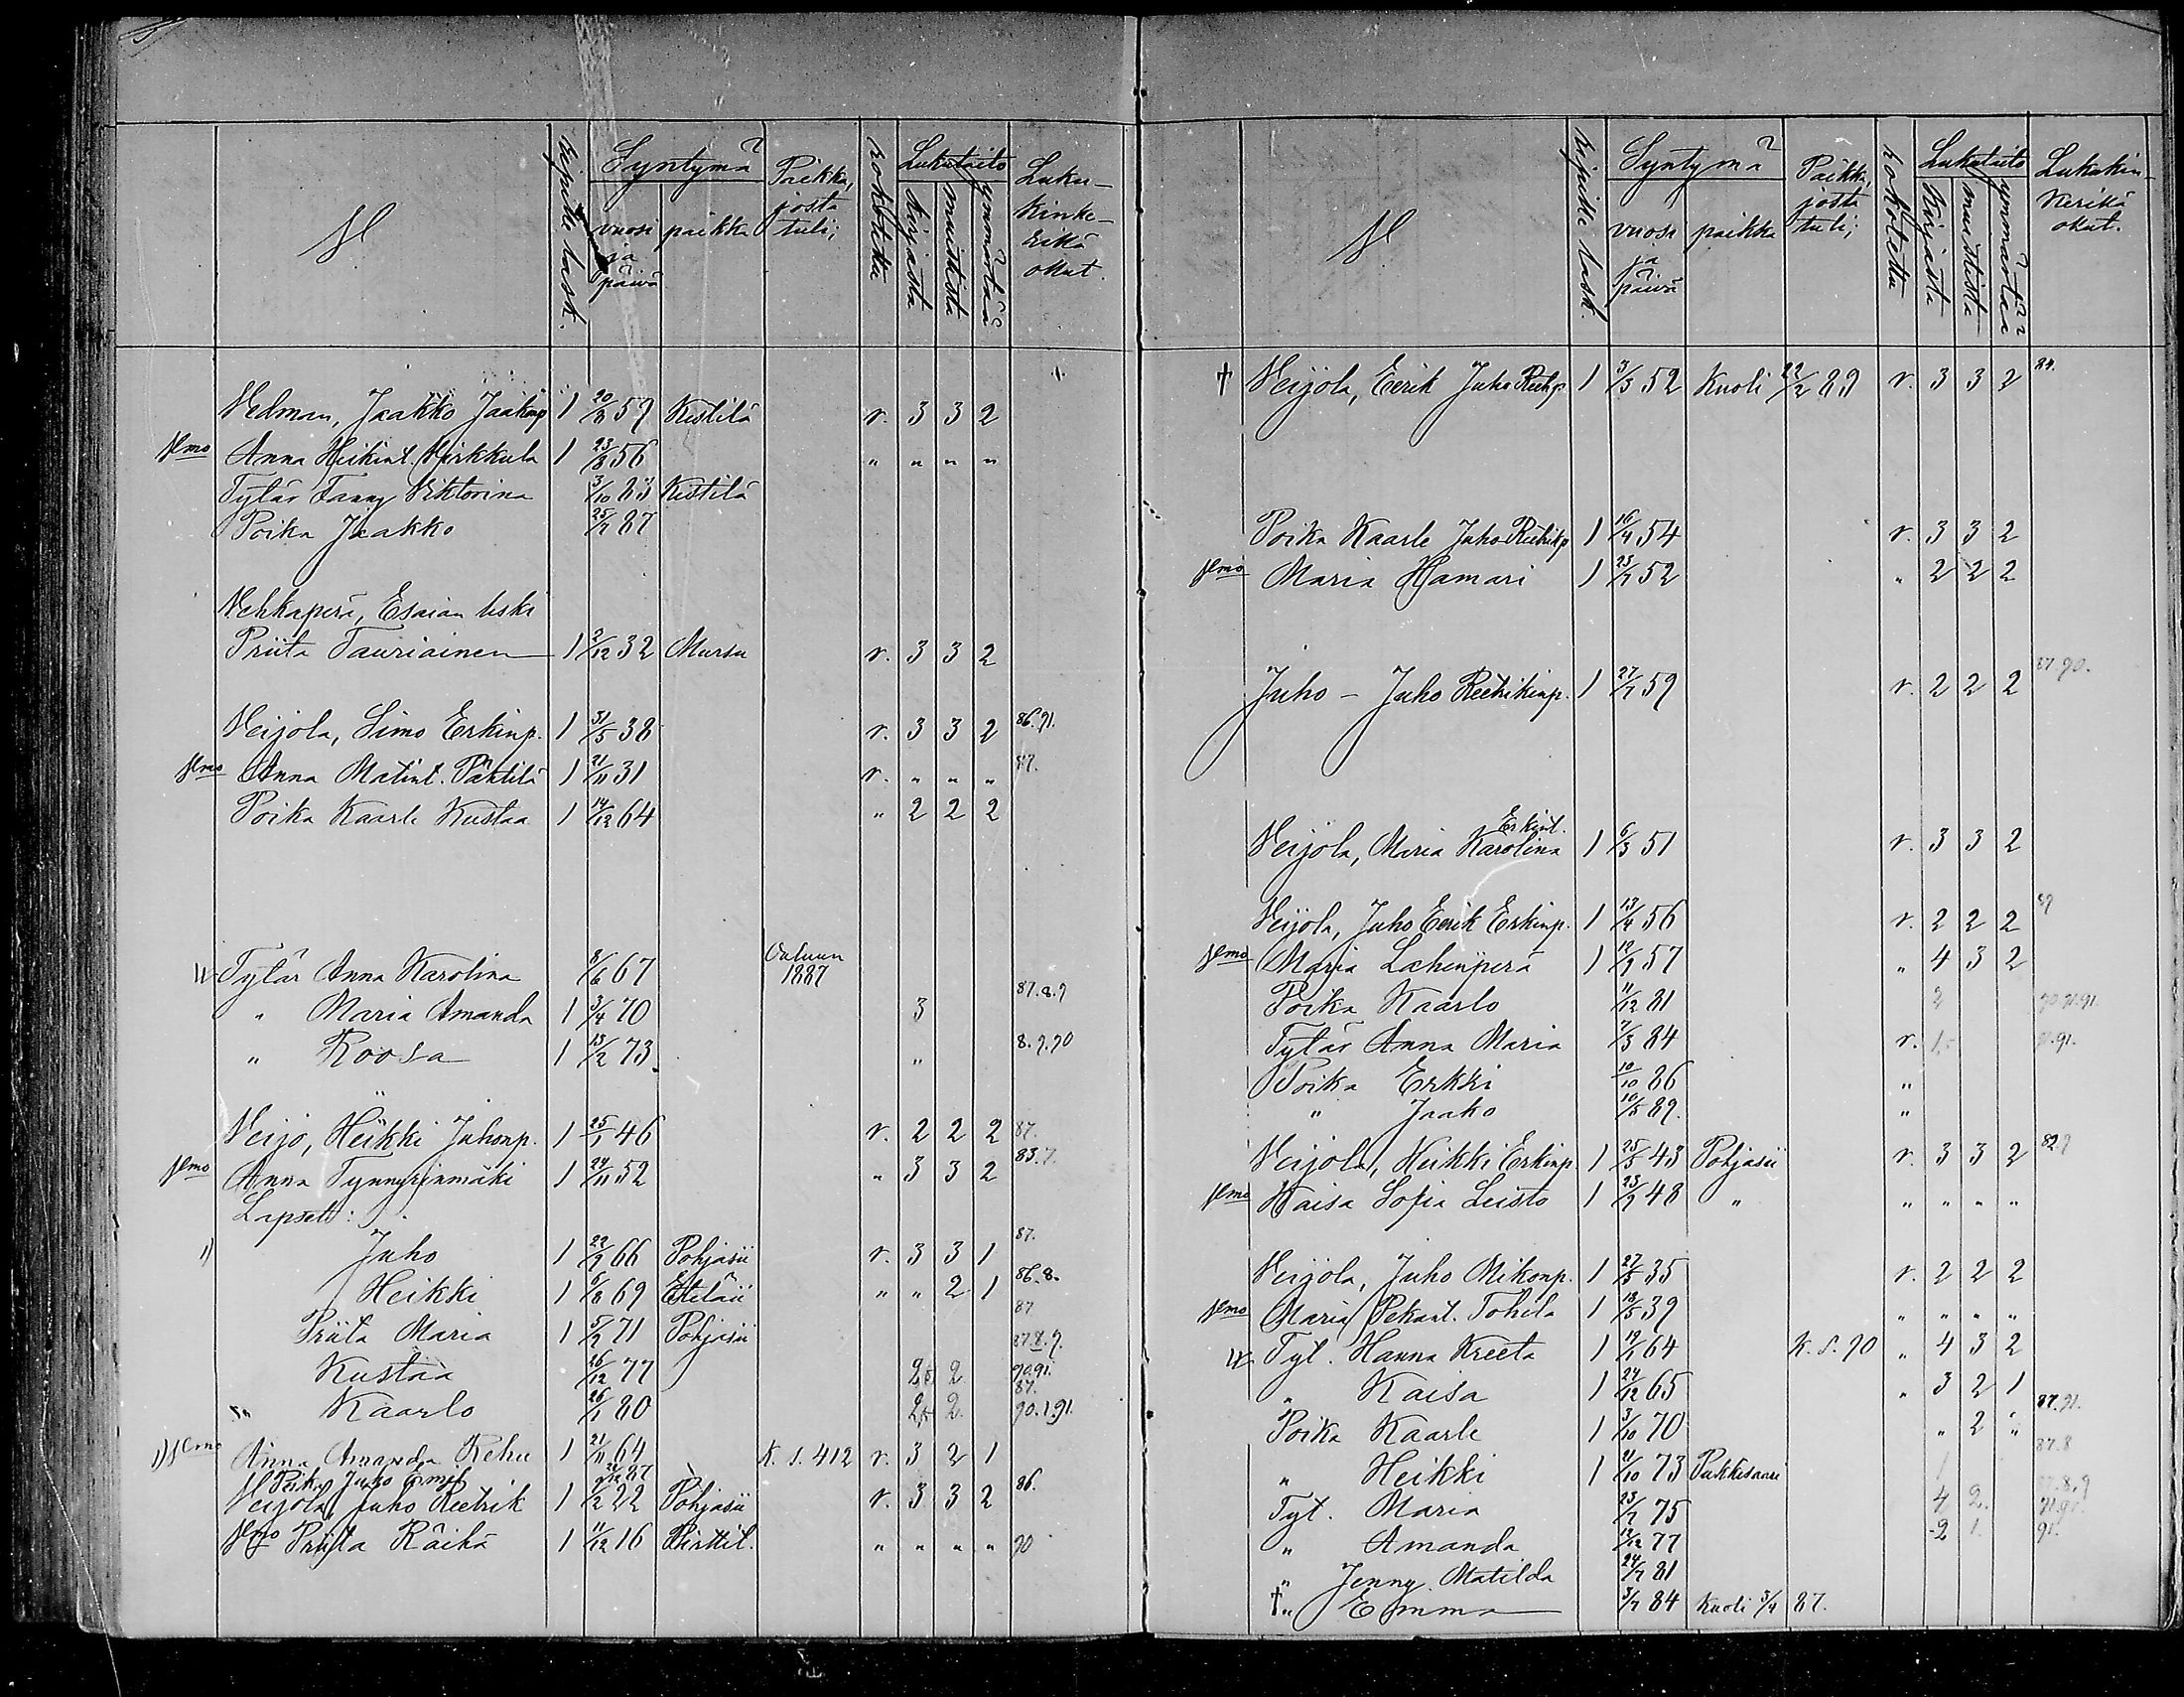 V
Ripille lask.
Syntymä
vuosi ja päivä
paikka
Paikka, josta tuli;
rokotettu
Lukutaito
kirjasta
muistista
ymmärtää
Luku-kinke-rikä okut.
Vedman, Jaakko Jaakinp 1 20/3 59 Kestilä r. 3 3 2
Vmo Anna Heikint. Kirkkula 1 23/8 56 " " " "
Tytär Fanny Viktorina 3/10 83 Kestilä
Poika Jaakko 25/7 87
Vehkaperä, Esaian leski
Priita Tauriainen 1 2/12 32 Mursu r. 3 3 2
Veijola, Simo Erkinp. 1 31/5 38 r. 3 3 2 86.91.
Vmo Anna Matint. Päktilä 1 21/11 31 r. " " " 87.
Poika Kaarle Kustaa 1 14/12 64 " 2 2 2
Tytär Anna Karolina 8/6 67 Ouluun 1887
" Maria Amanda 1 3/4 70 3 87.8.9
" Roosa 1 13/2 73 " 8.9.90
Veijo, Heikki Juhonp. 1 25/1 46 r. 2 2 2 87.
Vmo Anna Tynnyrinmäki 1 24/11 52 " 3 3 2 83.7.
Lapset:
1) Juho 1 22/9 66 Pohjasii r. 3 3 1 87.
Heikki 1 6/8 69 Eteläii " " 2 1 86.8.
Priita Maria 1 5/2 71 Pohjasii 87
Kustaa 26/12 77 2,5 2 90.91.
" Kaarlo 26/1 80 2,5 2. 90.1.91.
1) Vmo Anna Amanda Rehu 1 21/11 64 K. S. 412 r. 3 2 1
Poika Juho Ermil 87
Veijola Juho Reetrik 1 1/2 22 Pohjasii r. 3 3 2 86.
Vmo Priita Räihä 1 11/12 16 Pirttil. " " " " 90
V
Ripille lask.
Syntymä
vuosi ja päivä
paikka
Paikka, josta tuli;
rokotettu
Lukutaito
kirjasta
muistista
ymmärtää
Lukukin-kerikä okut.
† Veijola, Eerik Juho Reetrikp 1 3/3 52 Kuoli 22/2 89 r. 3 3 2 84.
Poika Kaarle Juho Reetrikp 1 16/4 54 r. 3 3 2
Vmo Maria Hamari 1 23/7 52 " 2 2 2
Juho - Juho Reetrikinp. 1 27/7 59 r. 2 2 2 87.90.
Erkint.
Veijola, Maria Karolina 1 6/3 51 r. 3 3 2
Veijola, Juho Eerik Erkinp. 1 13/4 56 r. 2 2 2 87
Vmo Maria Lahenperä 1 12/9 57 " 4 3 2
Poika Kaarlo 11/12 81 2
Tytär Anna Maria 7/3 84 r. 1,5
Poika Erkki 10/10 86 "
" Jaako 10/5 89. "
Veijola, Heikki Erkinp 1 25/5 43 Pohjasii r. 3 3 2 82.9
Vmo Kaisa Sofia Leisto 1 23/9 48 " " " " "
Veijola, Juho Mikonp. 1 27/5 35 r. 2 2 2
Vmo Maria Pekant. Tohila 1 18/5 39 " " " "
Tyt. Hanna Kreeta 1 19/1 64 K. S. 90 " 4 3 2
" Kaisa 1 24/12 65 " 3 2 1
Poika Kaarle 1 3/10 70 " 2 " 87.91.
" Heikki 1 21/10 73 Pukkisaari 1 87.8
Tyt. Maria 23/7 75 4 2.
" Amanda 12/12 77 2 1. 91.
" Jenny Matilda 24/7 81
† " Emma 3/7 84 Kuoli 3/4 87.